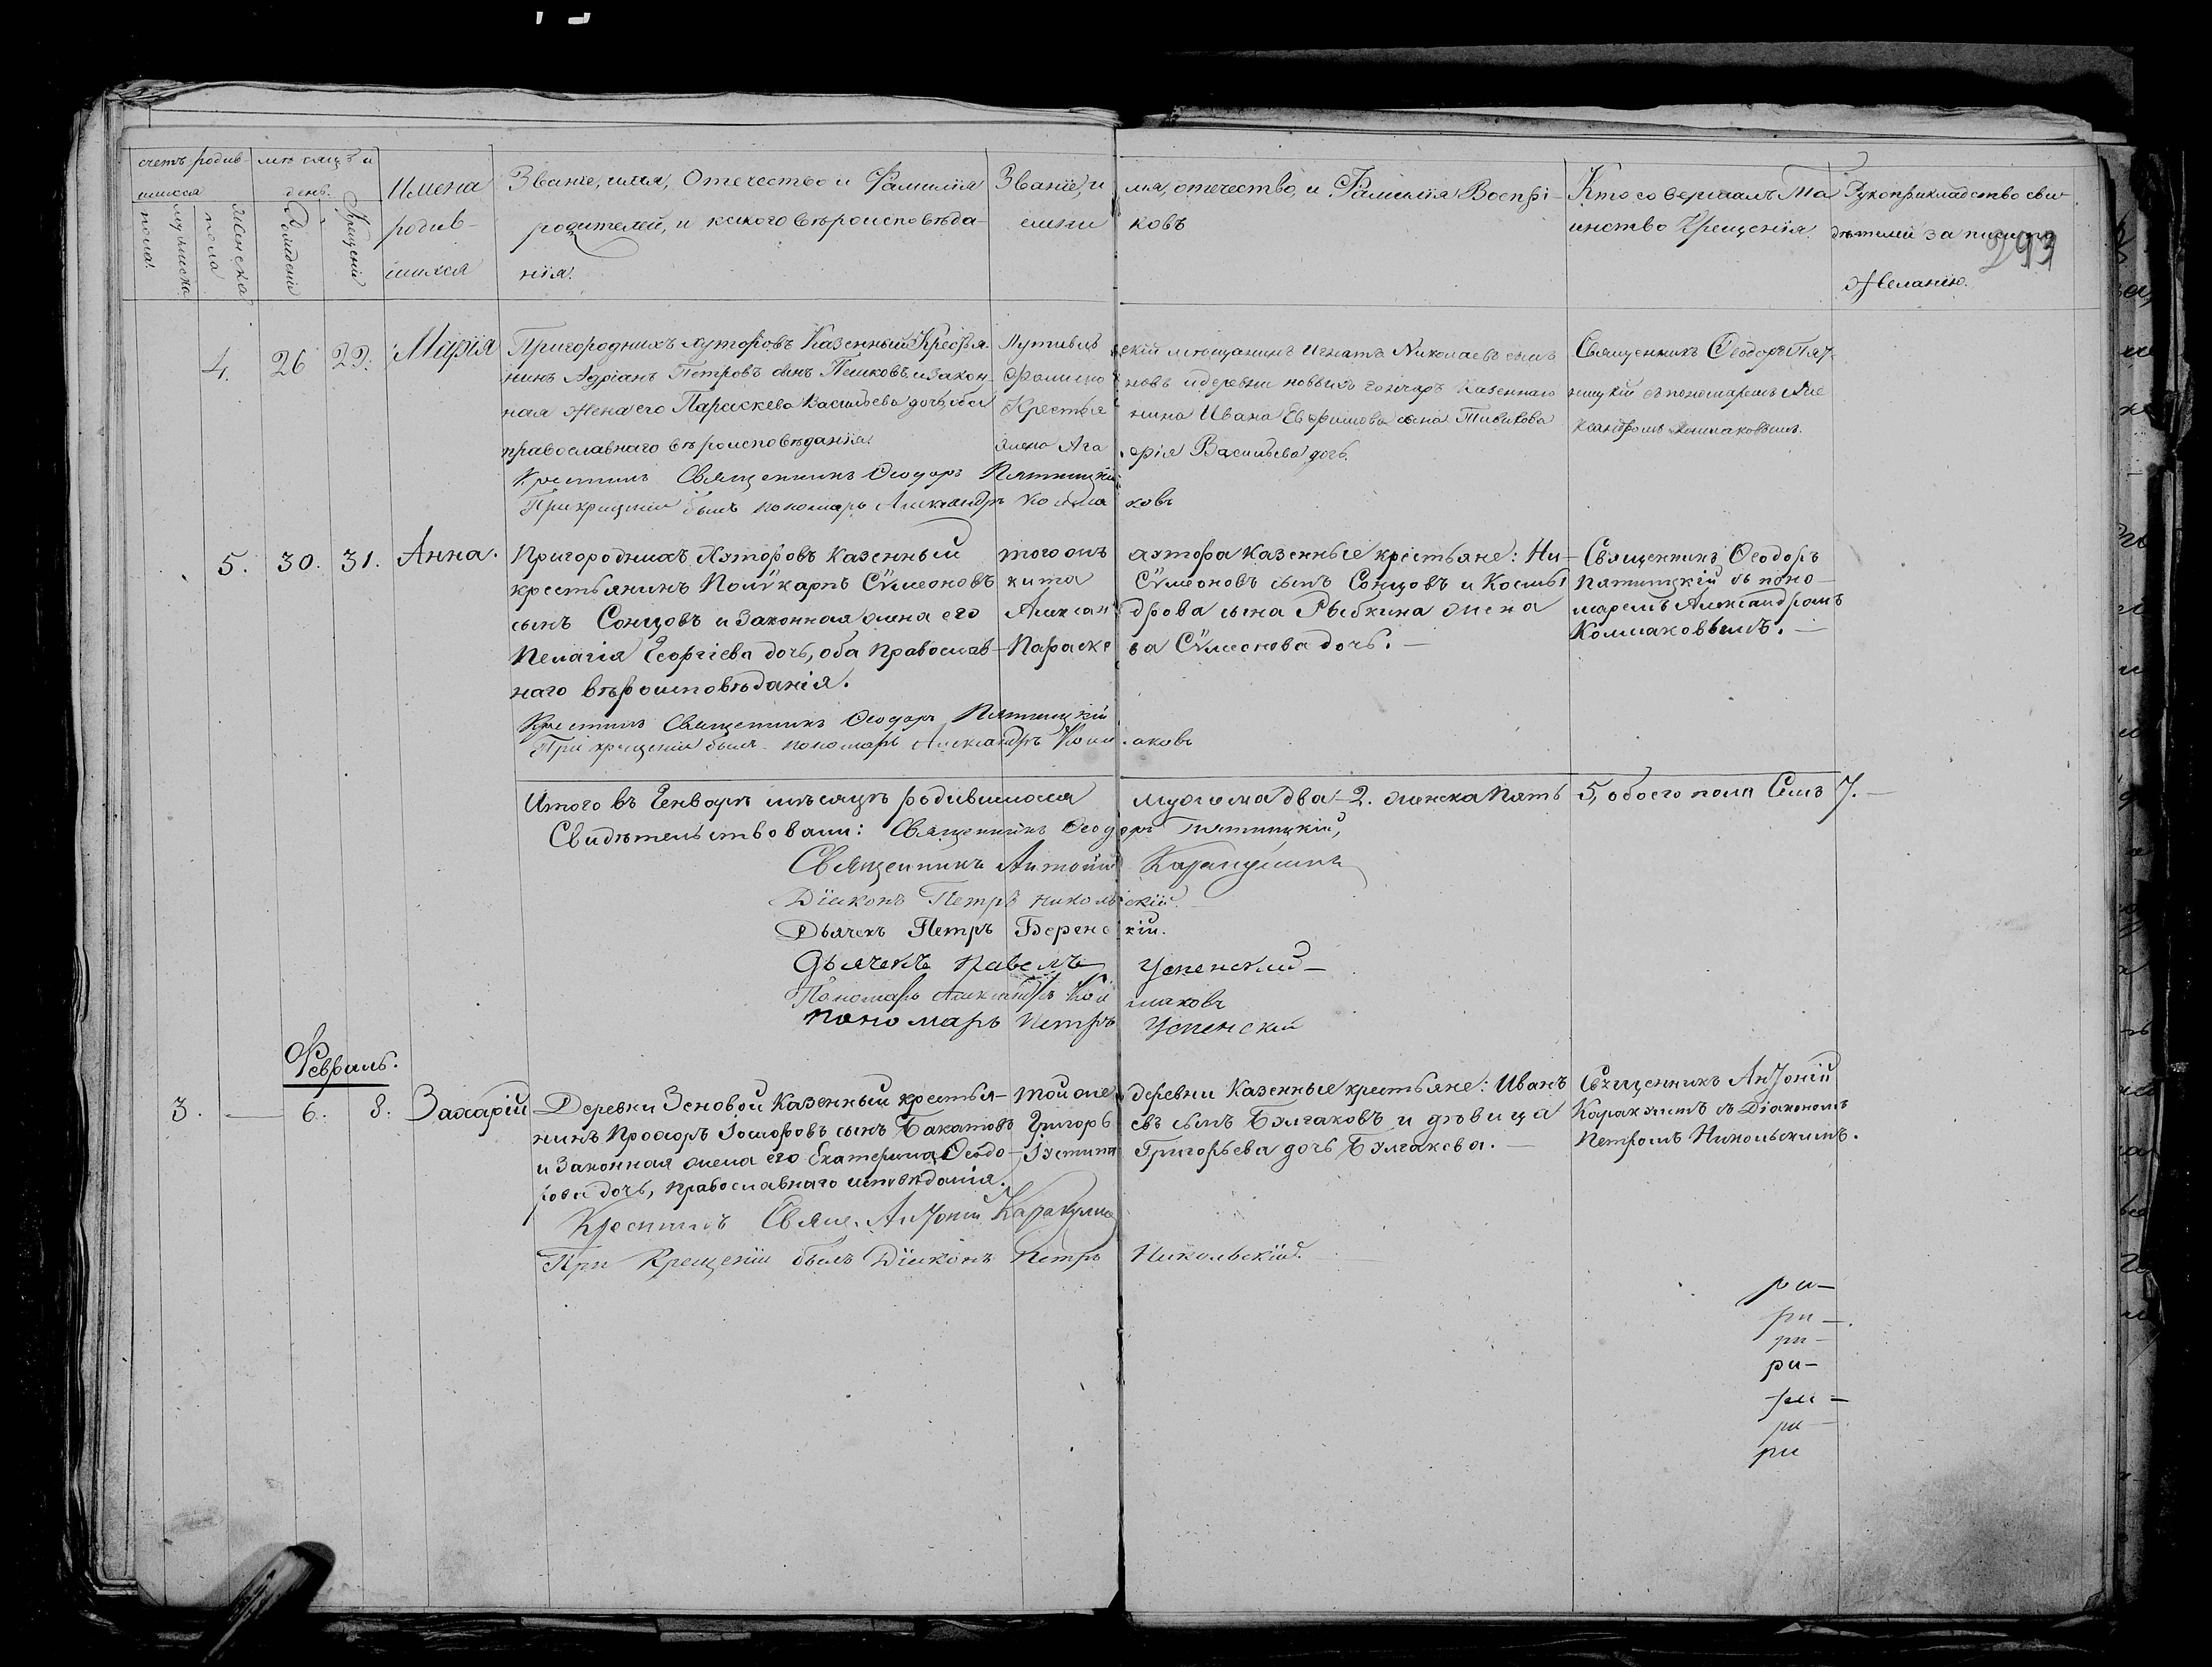 счетъ родив-
шихся
мужеска
пола
женска
пола
мѣсяцъ и
день.
Рожденія
Крещенія
Имена
родив-
шихся
Званіе, имя, Отечество и Фамилія
родителей, и какого вѣроисповѣда-
нія.
Званіе, имя, отечество, и Фамилія Воспрі-
емниковъ
Кто совершалъ Та
инство Крещенія.
Рукоприкладство сви
дѣтелей за писи по
желанію.
293
4. 26 29. Марія
Пригородныхъ хуторовъ Казенный Крестья-
нинъ Адріанъ Петровъ сынъ Пешковъ и закон-
ная жена его Параскева Васильева дочь, оба
православнаго вѣроисповѣданія.
Путивльскій мѣщанинъ Игнатъ Николаевъ сынъ
новъ и деревни новыхъ гончаръ Казеннаго
Крестьянина Ивана Евфимова сына Тивикова
жена Агафія Васильева дочь.
Священникъ Ѳеодоръ Пят-
ницкій съ пономаремъ Але
ксандромъ Колмаковымъ.
Крестилъ Священникъ Ѳеодоръ Пятницкій
При крещеніи былъ пономарь Александръ Колмаковъ
5. 30. 31. Анна.
Пригородныхъ Хуторовъ Казенный
крестьянинъ Полѵкарпъ Сѵмеоновъ
сынъ Сонцовъ и Законная жена его
Пелагія Георгіева дочь, оба Православ-
наго вѣроисповѣданія.
того жъ хутора Казенные крестьяне: Ни-
кита Сѵмеоновъ сынъ Сонцовъ и Космы
Александрова сына Рыбкина жена
Параскева Сѵмеонова дочь.
Священникъ Ѳеодоръ
Пятницкій съ поно-
маремъ Александромъ
Колмаковымъ.
Крестилъ Священникъ Ѳеодоръ Пятницкій
При крещеніи былъ пономарь Александръ Колмаковъ
Итого въ Генварѣ мѣсяцѣ родившихся мужеска два-2. женска Пять 5, обоего пола Семь 7.
Свидѣтельствовали: Священникъ Ѳеодоръ Пятницкій,
Священникъ Антоній Каракулинъ
Діаконъ Петръ Никольскій.
Дьячекъ Петръ
Дьячекъ Павелъ Успенский
Пономарь Александръ Колмаковъ
пономарь Петръ Успенскій
Февраль.
3. — 6. 8. Захарій
Деревни Зеновой Казенный крестья-
нинъ Прохоръ сынъ Бакатовъ
и Законная жена его Екатерина Ѳеодо-
рова дочь, православнаго исповѣданія.
той же деревни Казенные крестьяне: Иванъ
Григорьевъ сынъ Булгаковъ и дѣвица
Іустина Григорьева дочь Булгакова.
Священникъ Антоній
Каракулинъ съ Діакономъ
Петромъ Никольскимъ.
Крестилъ Свящ. Антоній Каракулинъ
При Крещеніи былъ Діаконъ Петръ Никольскій.
ри-
ри-
ри-
ри-
ри-
ри-
ри